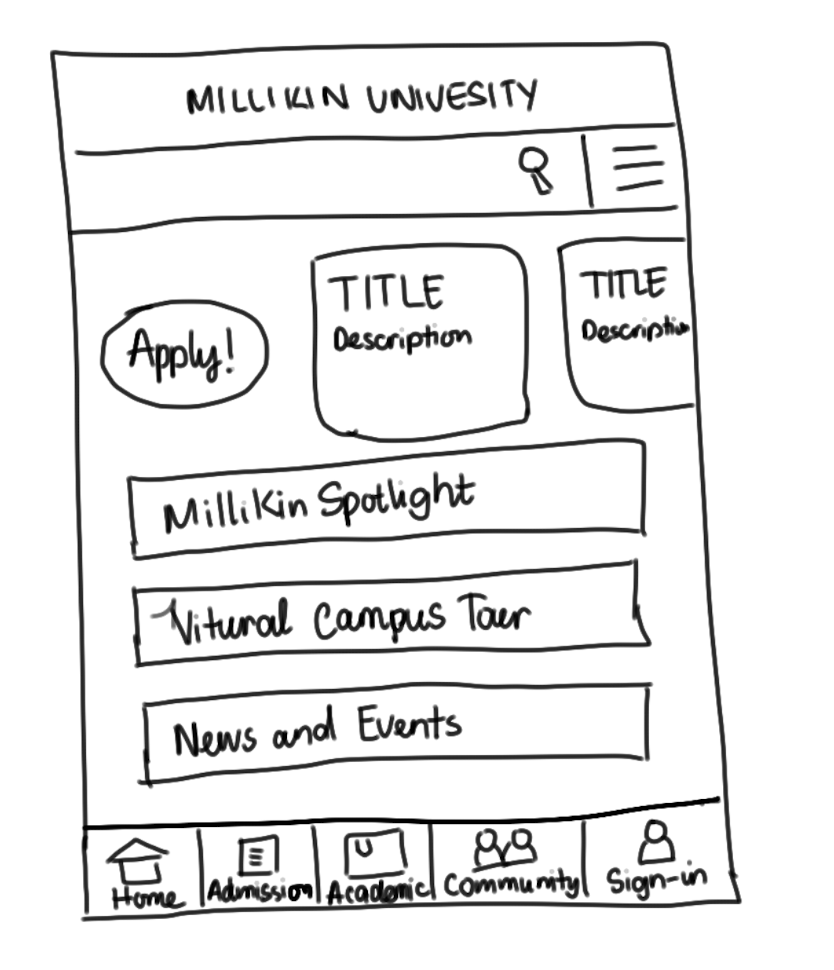 MILLIKIN UNIVESITY
TITLE
Description
TITLE
Descriptio
Apply!
Millikin Spotlight
Vitural Campus Tour
News and Events
Home
Admission
Academic
Community
Sign-in